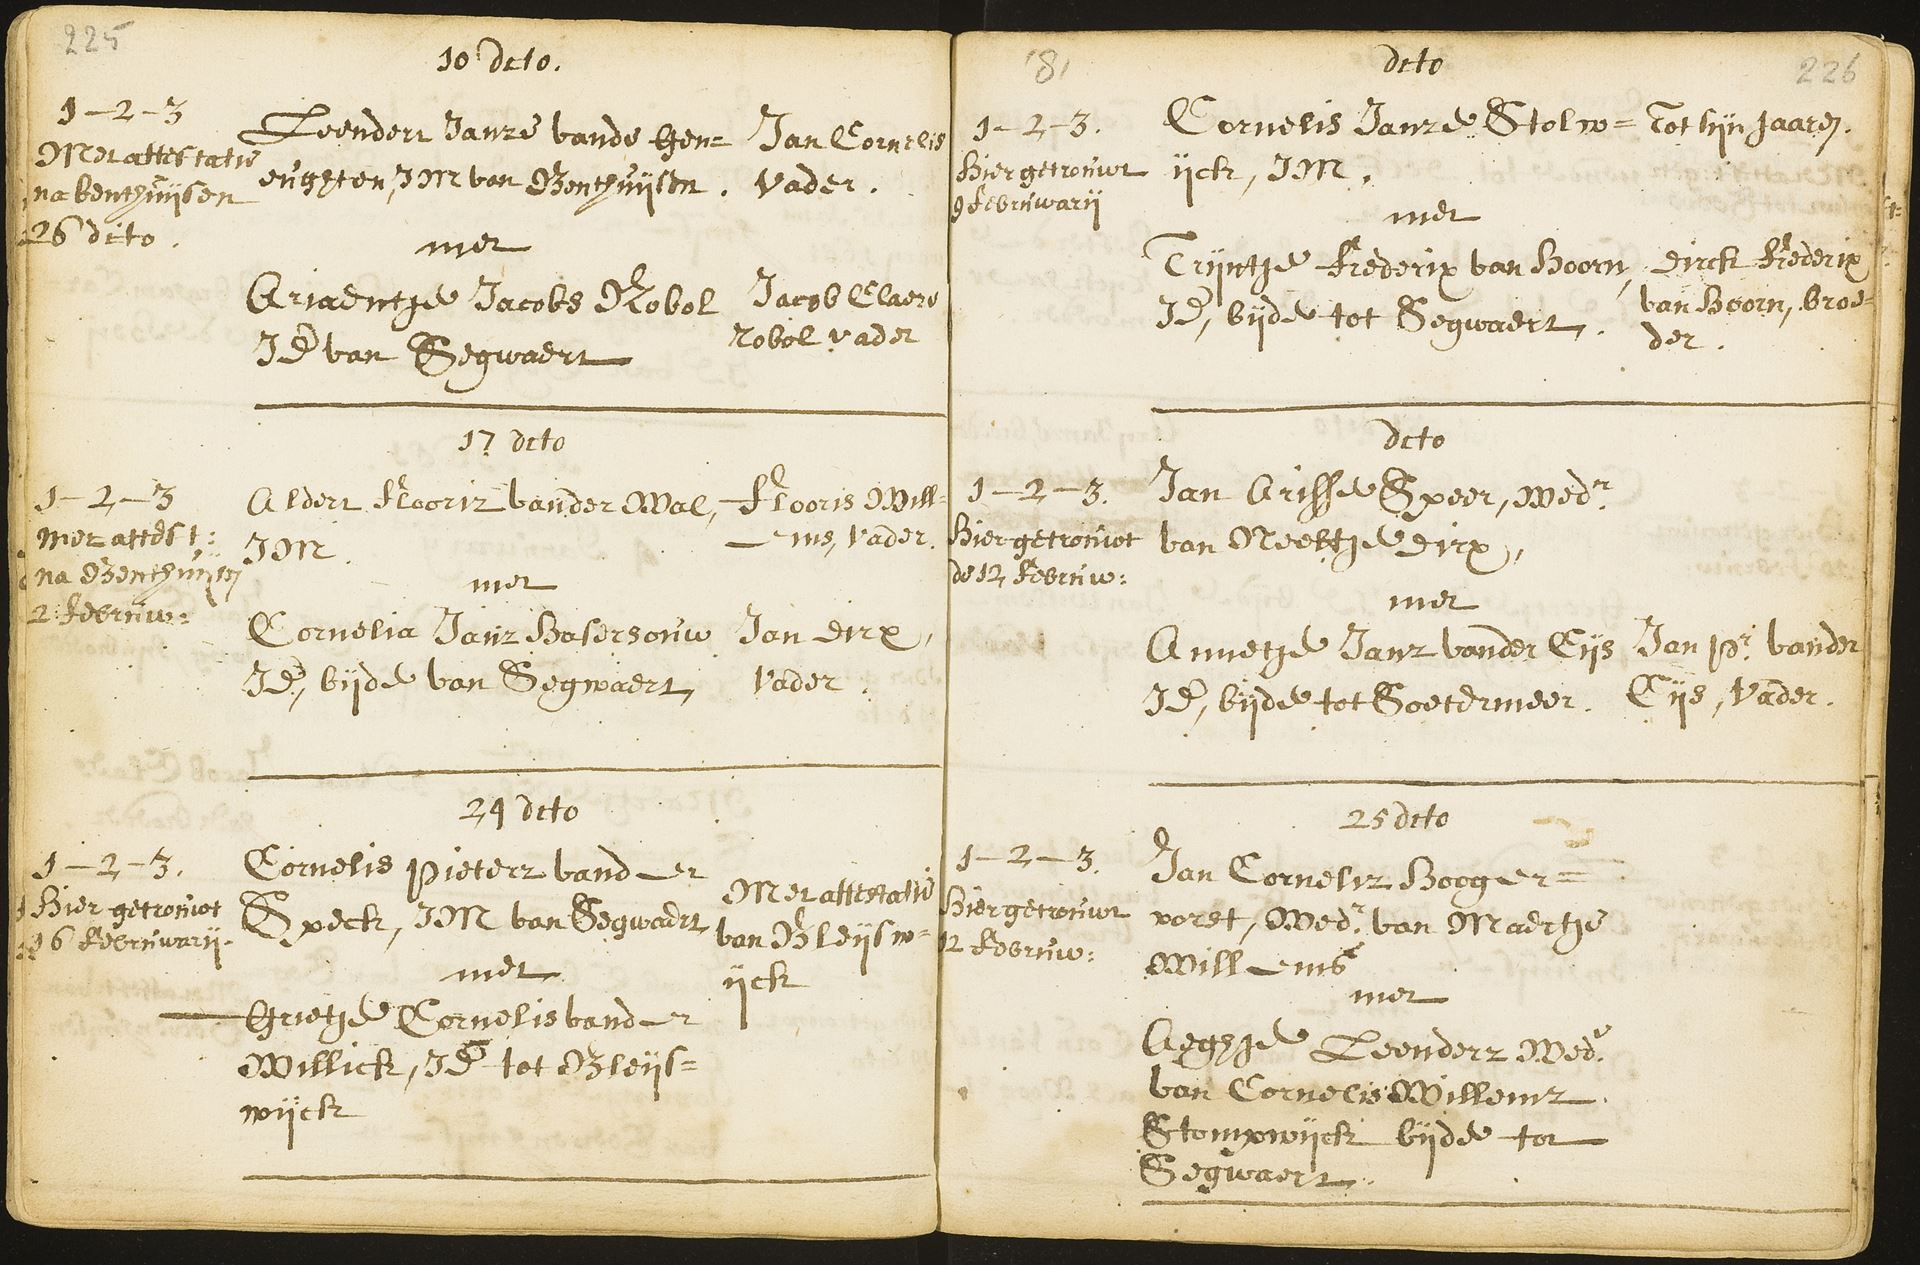 225
10 dito.
1-2-3
Met attestatie
na benthuijsen
26 dito.
Leendert Janze vande Gen=
eugten, JM van Benthuijsen.
Jan Cornelis
Vader.
met
Ariaentje Jacobs Robol
JD van Segwaert
Jacob Claers
Robol vader
17 dito
1-2-3
met attest:
na Benthuijsen
2 Februw:
Aldert Flooriz vander Wal,
JM.
Flooris Will=
ems, Vader.
met
Cornelia Janz
JD, bijde van Segwaert,
Jan dirx,
Vader.
24 dito
1-2-3.
Hier getrouwt
16 Februwarij.
Cornelis pieterz vander
Speck, JM van Segwaert
Met attestatie
van Bleijsw=
ijck
met
Grietje Cornelis vander
Willick, JD tot Bleijs=
wijck
8
226
dito
1-2-3.
Hier getrouwt
9 Februwarij
Cornelis Janze Stolw=
ijck, JM.
Tot sijn Jaaren.
met
Trijntje Frederix van Hoorn,
JD, bijde tot Segwaert.
dirck Frederix
van Hoorn, broe=
der.
dito
1-2-3.
Hier getrouwt
de 12 Februw:
Jan Arisse Speer, Wedr
van Neeltje dirx,
met
Annetje Janz vander Eijs
JD, bijde tot Soetermeer.
Jan Pr. vander
Eijs, Vader.
25 dito
1-2-3.
Hier getrouwt
12 Februw:
Jan Cornelisz Hooger=
vorst, Wedr. van Maertje
Willems
met
Aeghje Leenderz Wede.
van Cornelis Willemz
Stompwijck bijde tot
Segwaert.